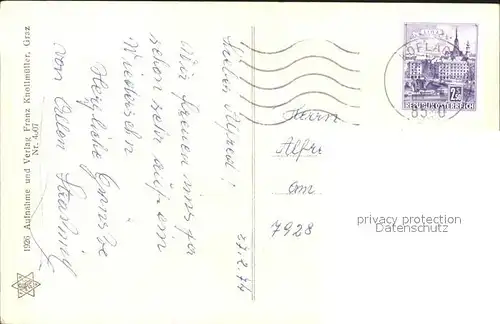 1926 Aufnahme und Verlag Franz Knollmüller, Graz
Nr. 4.07
27.2.74
Lieber Alfred!
Wir freuen uns
schon sehr auf ein
Wiedersehen
Herzliche Grüsse
von Allen
Herrn
Alfre
am
7928
KÖFLACH
85 0
2.50
REPUBLIK ÖSTERREICH
privacy protection
(datenschutz)